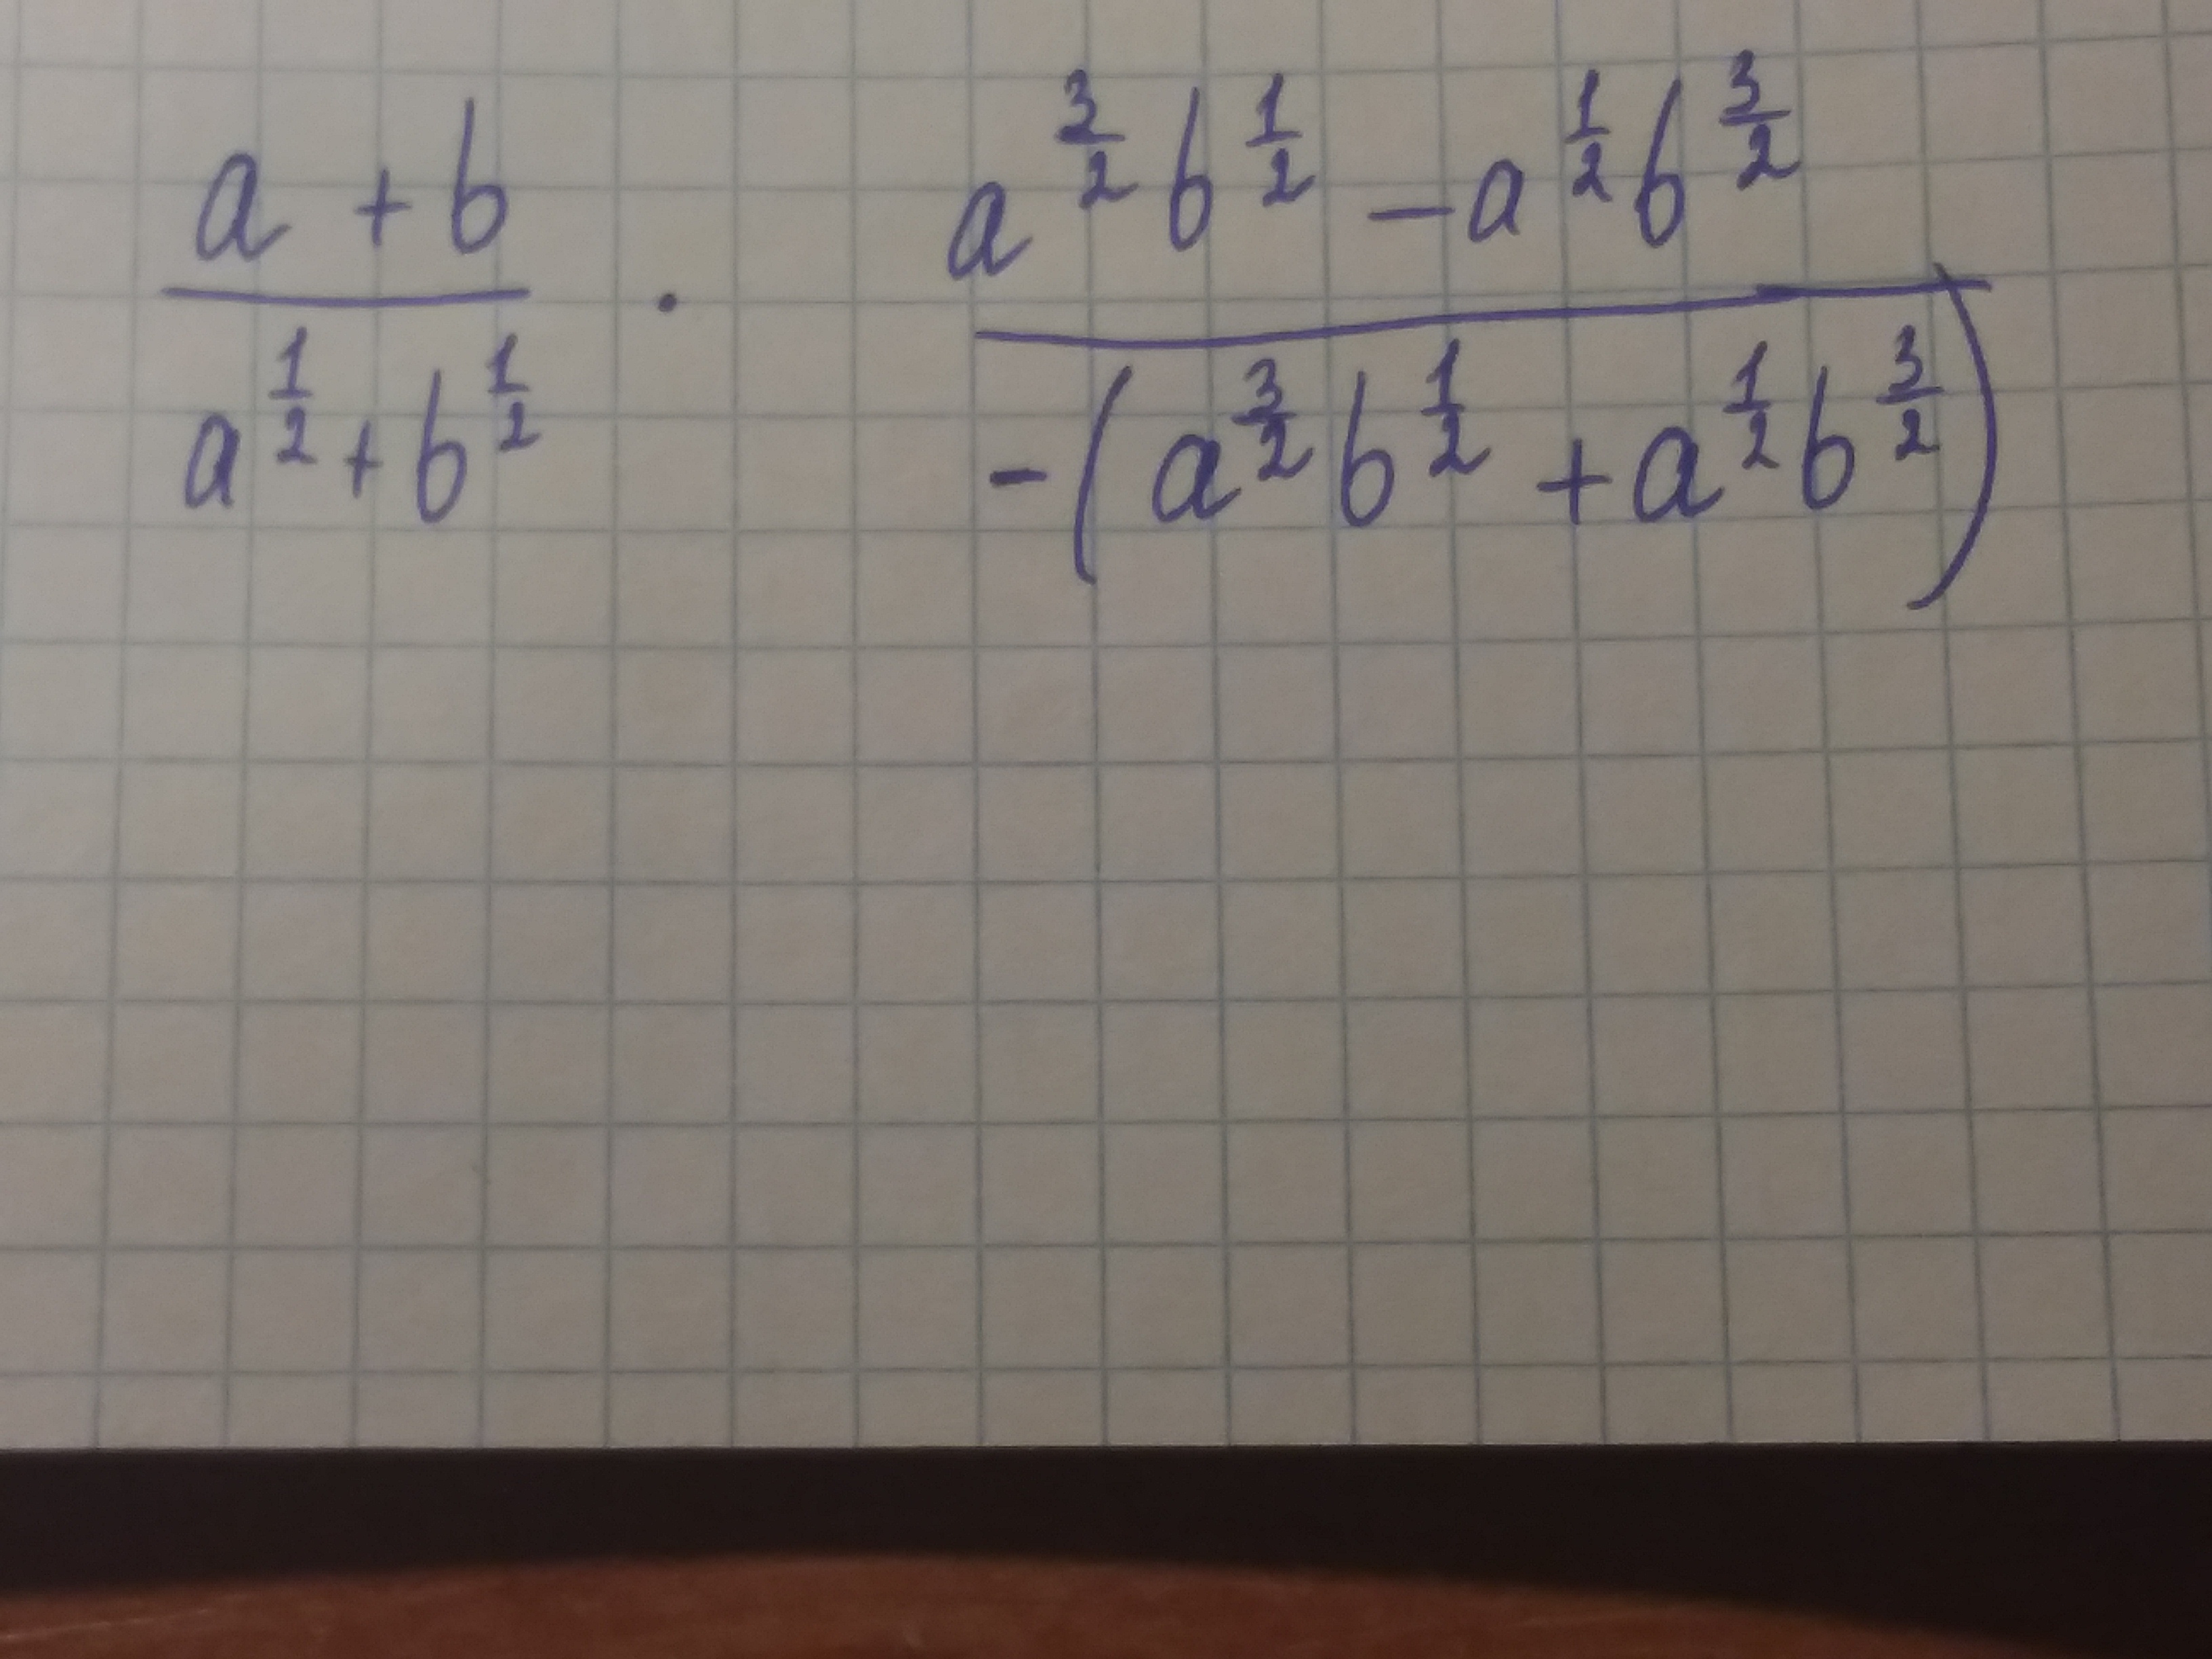 \frac{a + b}{a^{\frac{1}{2}} + b^{\frac{1}{2}}} \cdot \frac{a^{\frac{3}{2}} b^{\frac{1}{2}} - a^{\frac{1}{2}} b^{\frac{3}{2}}}{-\left( a^{\frac{3}{2}} b^{\frac{1}{2}} + a^{\frac{1}{2}} b^{\frac{3}{2}} \right)}